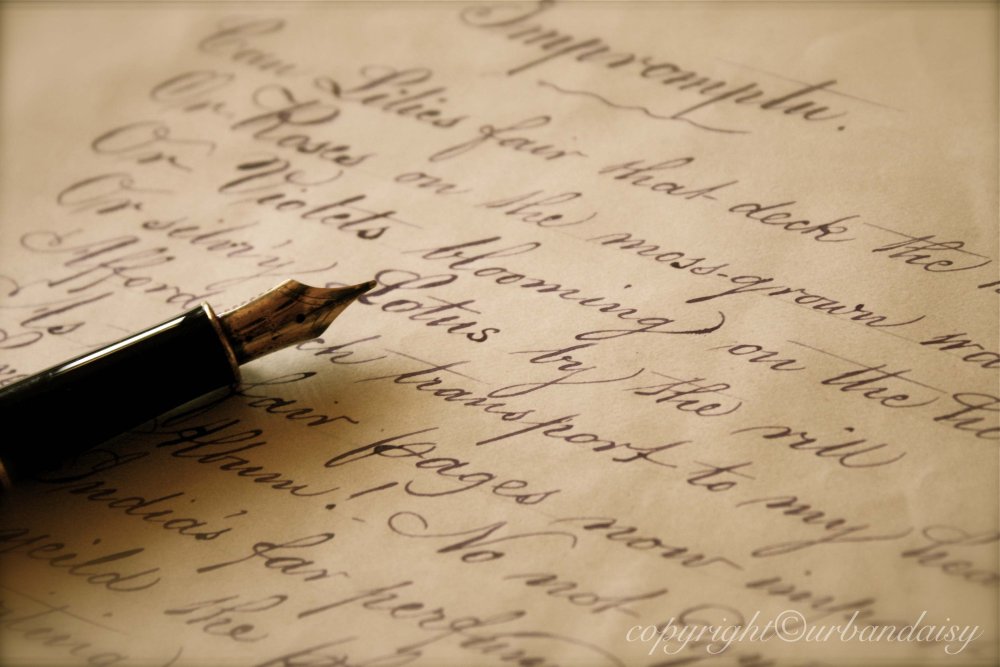 Impromptu.
Can Lilies fair that deck the
Or Roses on the moss-grown
Or Violets blooming on the
Or Lotus by the rill
Afford transport to my
As fair Pages now
Album! No not
India's far
yeild the
copyright©urbandaisy